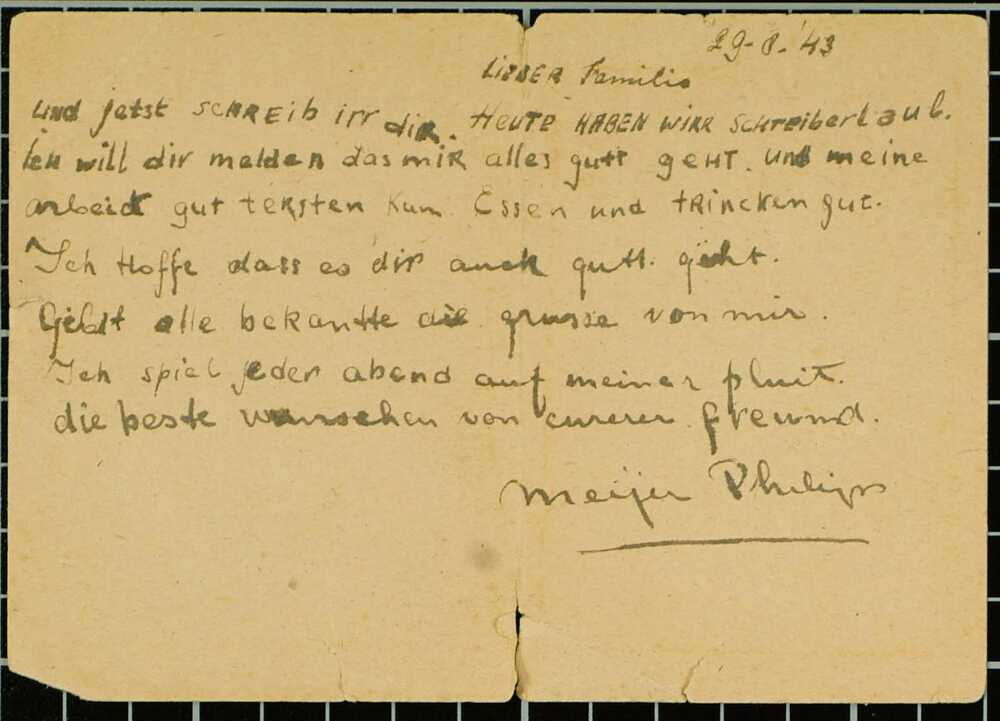 29-8-'43
Lieber Familie
und jetst schreib irr dir. Heute haben wirr schreiberlaub.
Ich will dir melden das mir alles gutt geht. und meine
arbeid gut Essen und trincken gut.
Ich Hoffe dass es dir auch gutt. geht.
alle bekantte die grusse von mir.
Ich spiel jeder abend auf meiner pluit.
die beste wunschen von eurerer freund.
Meijer Philips